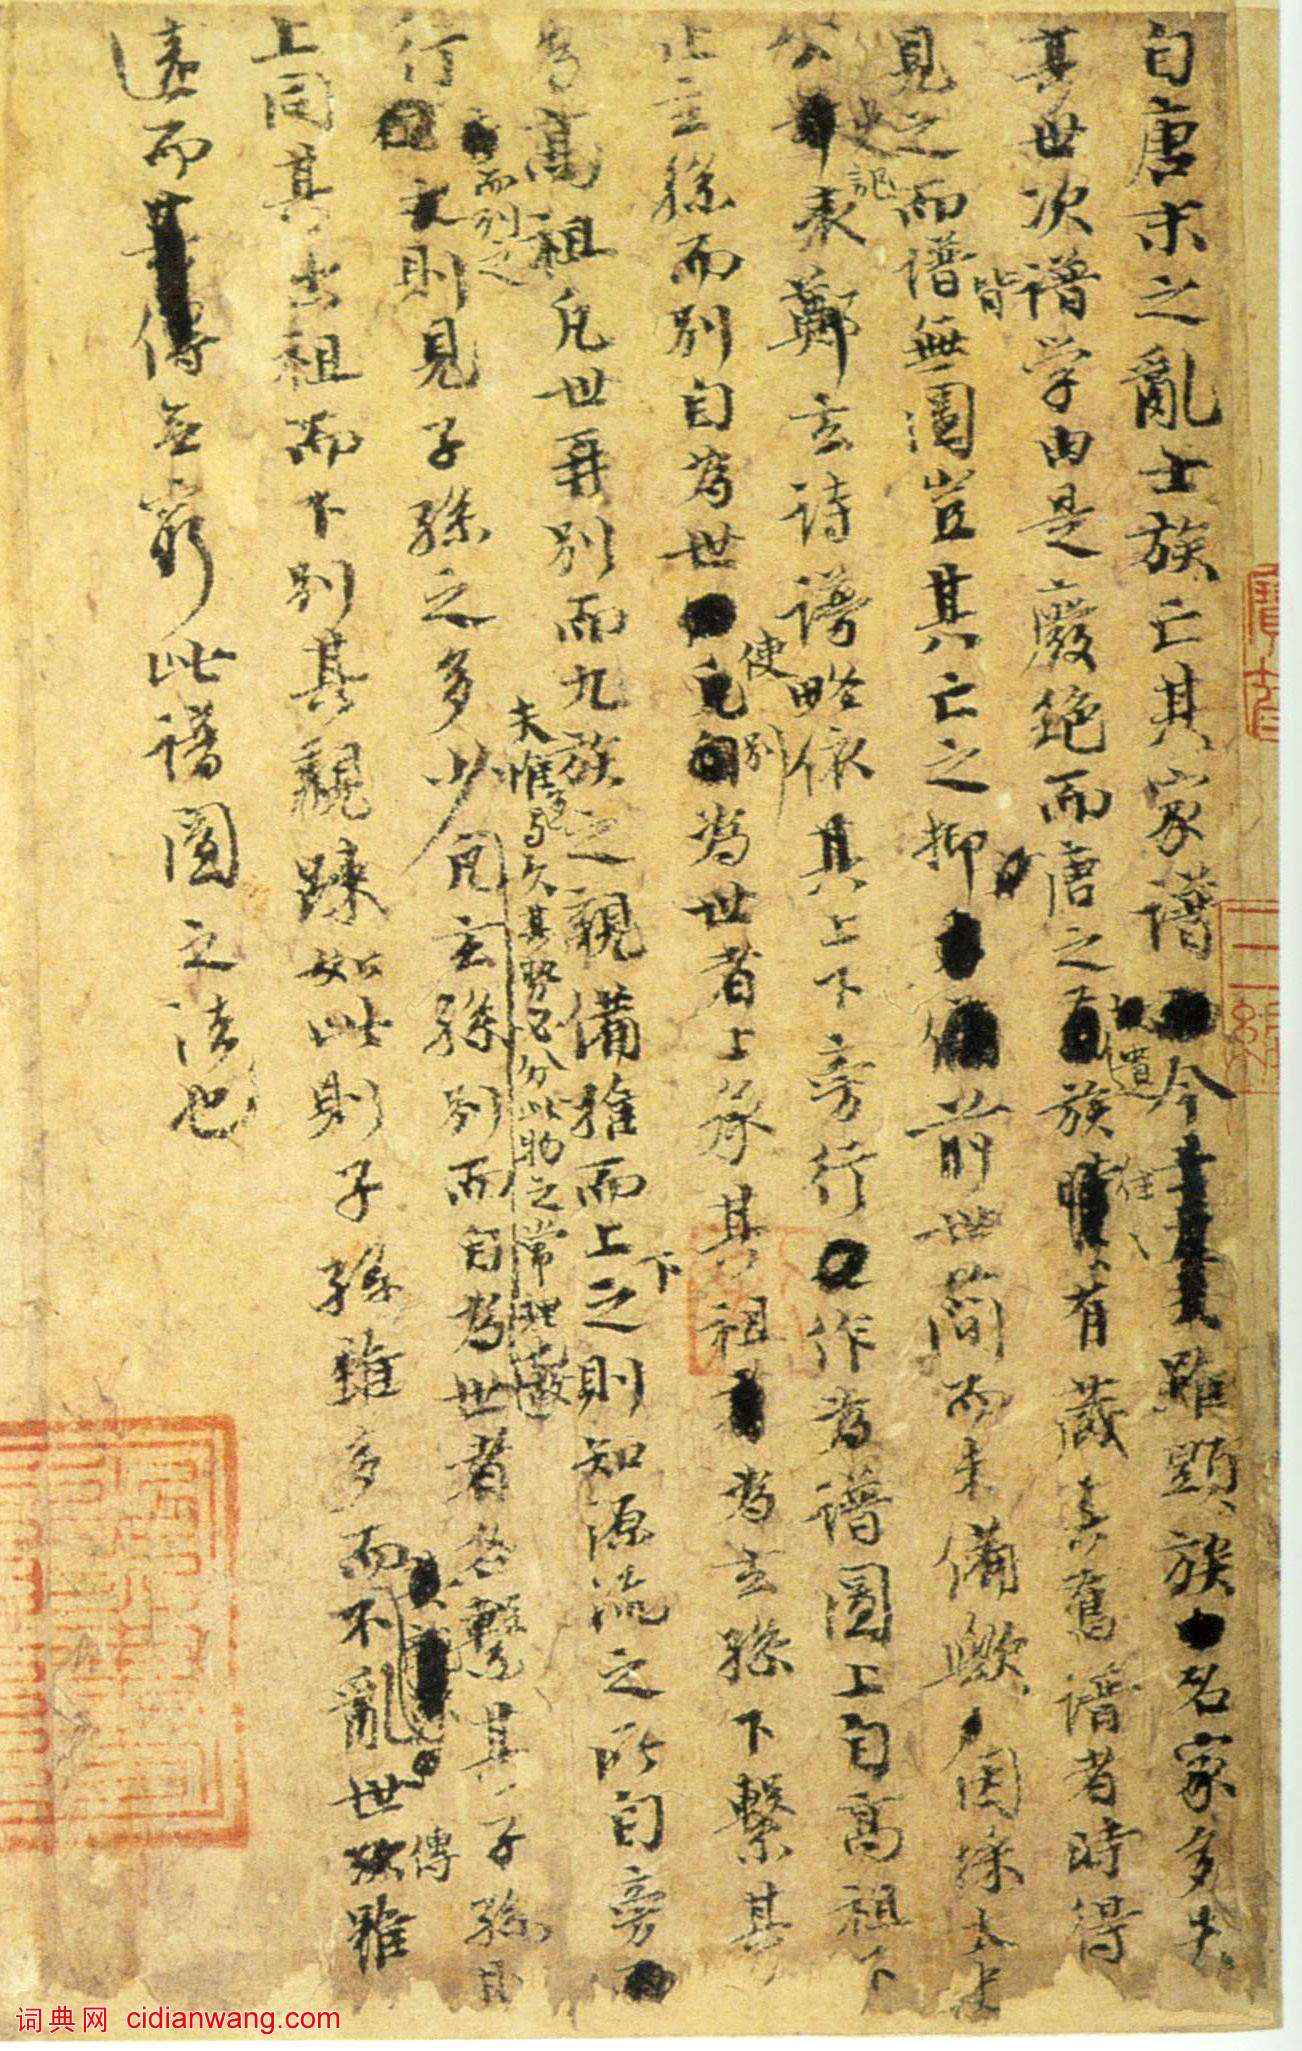 自唐末之亂士族亡其家譜今雖顯族名家多失
其世次譜学由是廢絶而唐之遺族往往有藏其舊譜者時得
見之而譜皆無圖豈其亡之抑前世簡而未備歟因採太史
公史記表鄭玄詩譜略依其上下旁行作為譜圖上自高祖下
止玄孫而別自為世使別為世者上承其祖為玄孫下繫其
為高祖凡世再別而九族之親備推而上下之則知源流之所自旁
行而列之則見子孫之多少
未惟多與久其勢必分此物之常理也
凡玄孫別而自為世者各繫其子孫則
上同其出祖而下別其親踈如此則子孫雖多而不亂世傳雖
遠而無窮此譜圖之法也
词典网 cidianwang.com